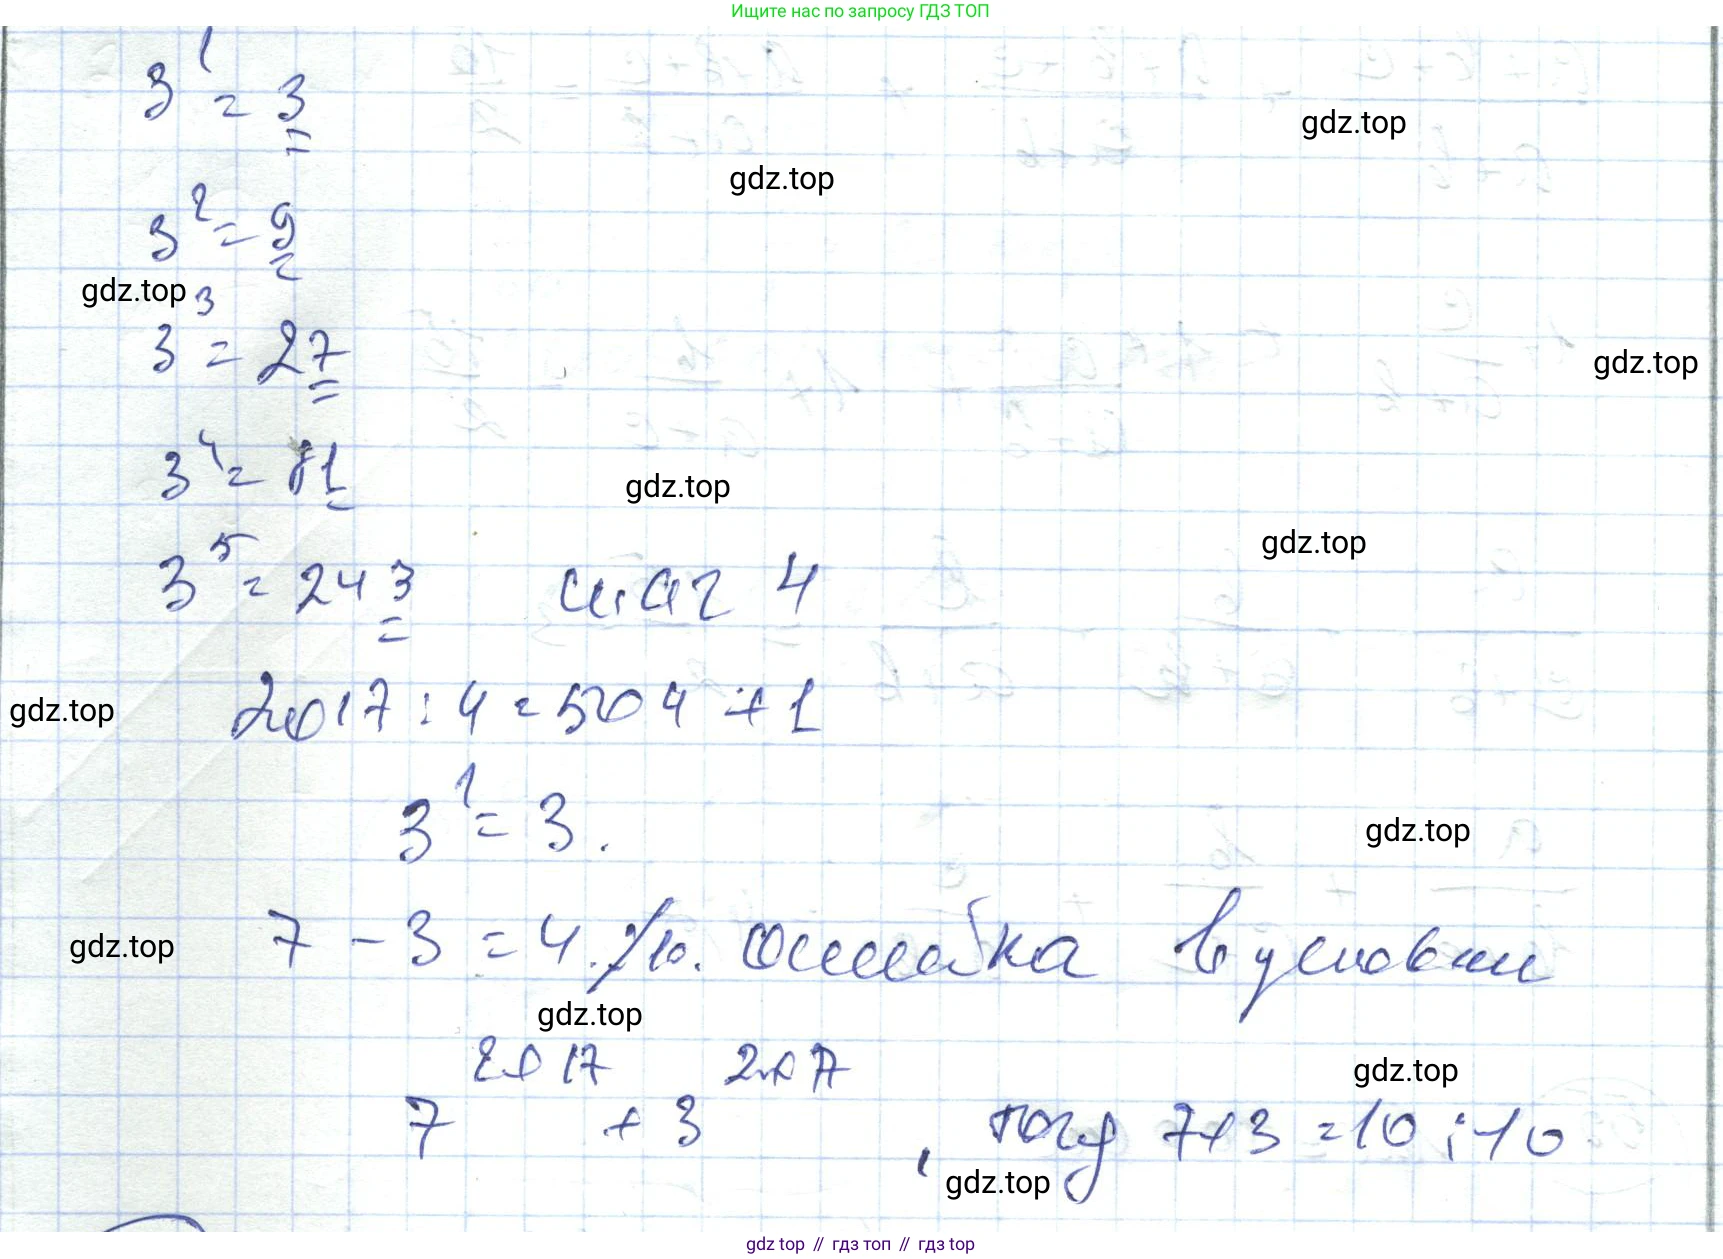 Ищите нас по запросу ГДЗ ТОП
3¹ = 3
gdz.top
gdz.top
3² = 9
gdz.top
3³ = 27
gdz.top
3⁴ = 81
gdz.top
gdz.top
3⁵ = 243 шаг 4
gdz.top
2017 : 4 = 504 + 1
gdz.top
3¹ = 3.
gdz.top
7 - 3 = 4. 10. ошибка в условии
gdz.top
gdz.top
7²⁰¹⁷ + 3²⁰¹⁷, тогда 7+3 = 10 : 10
gdz.top
gdz top // гдз топ // гдз top